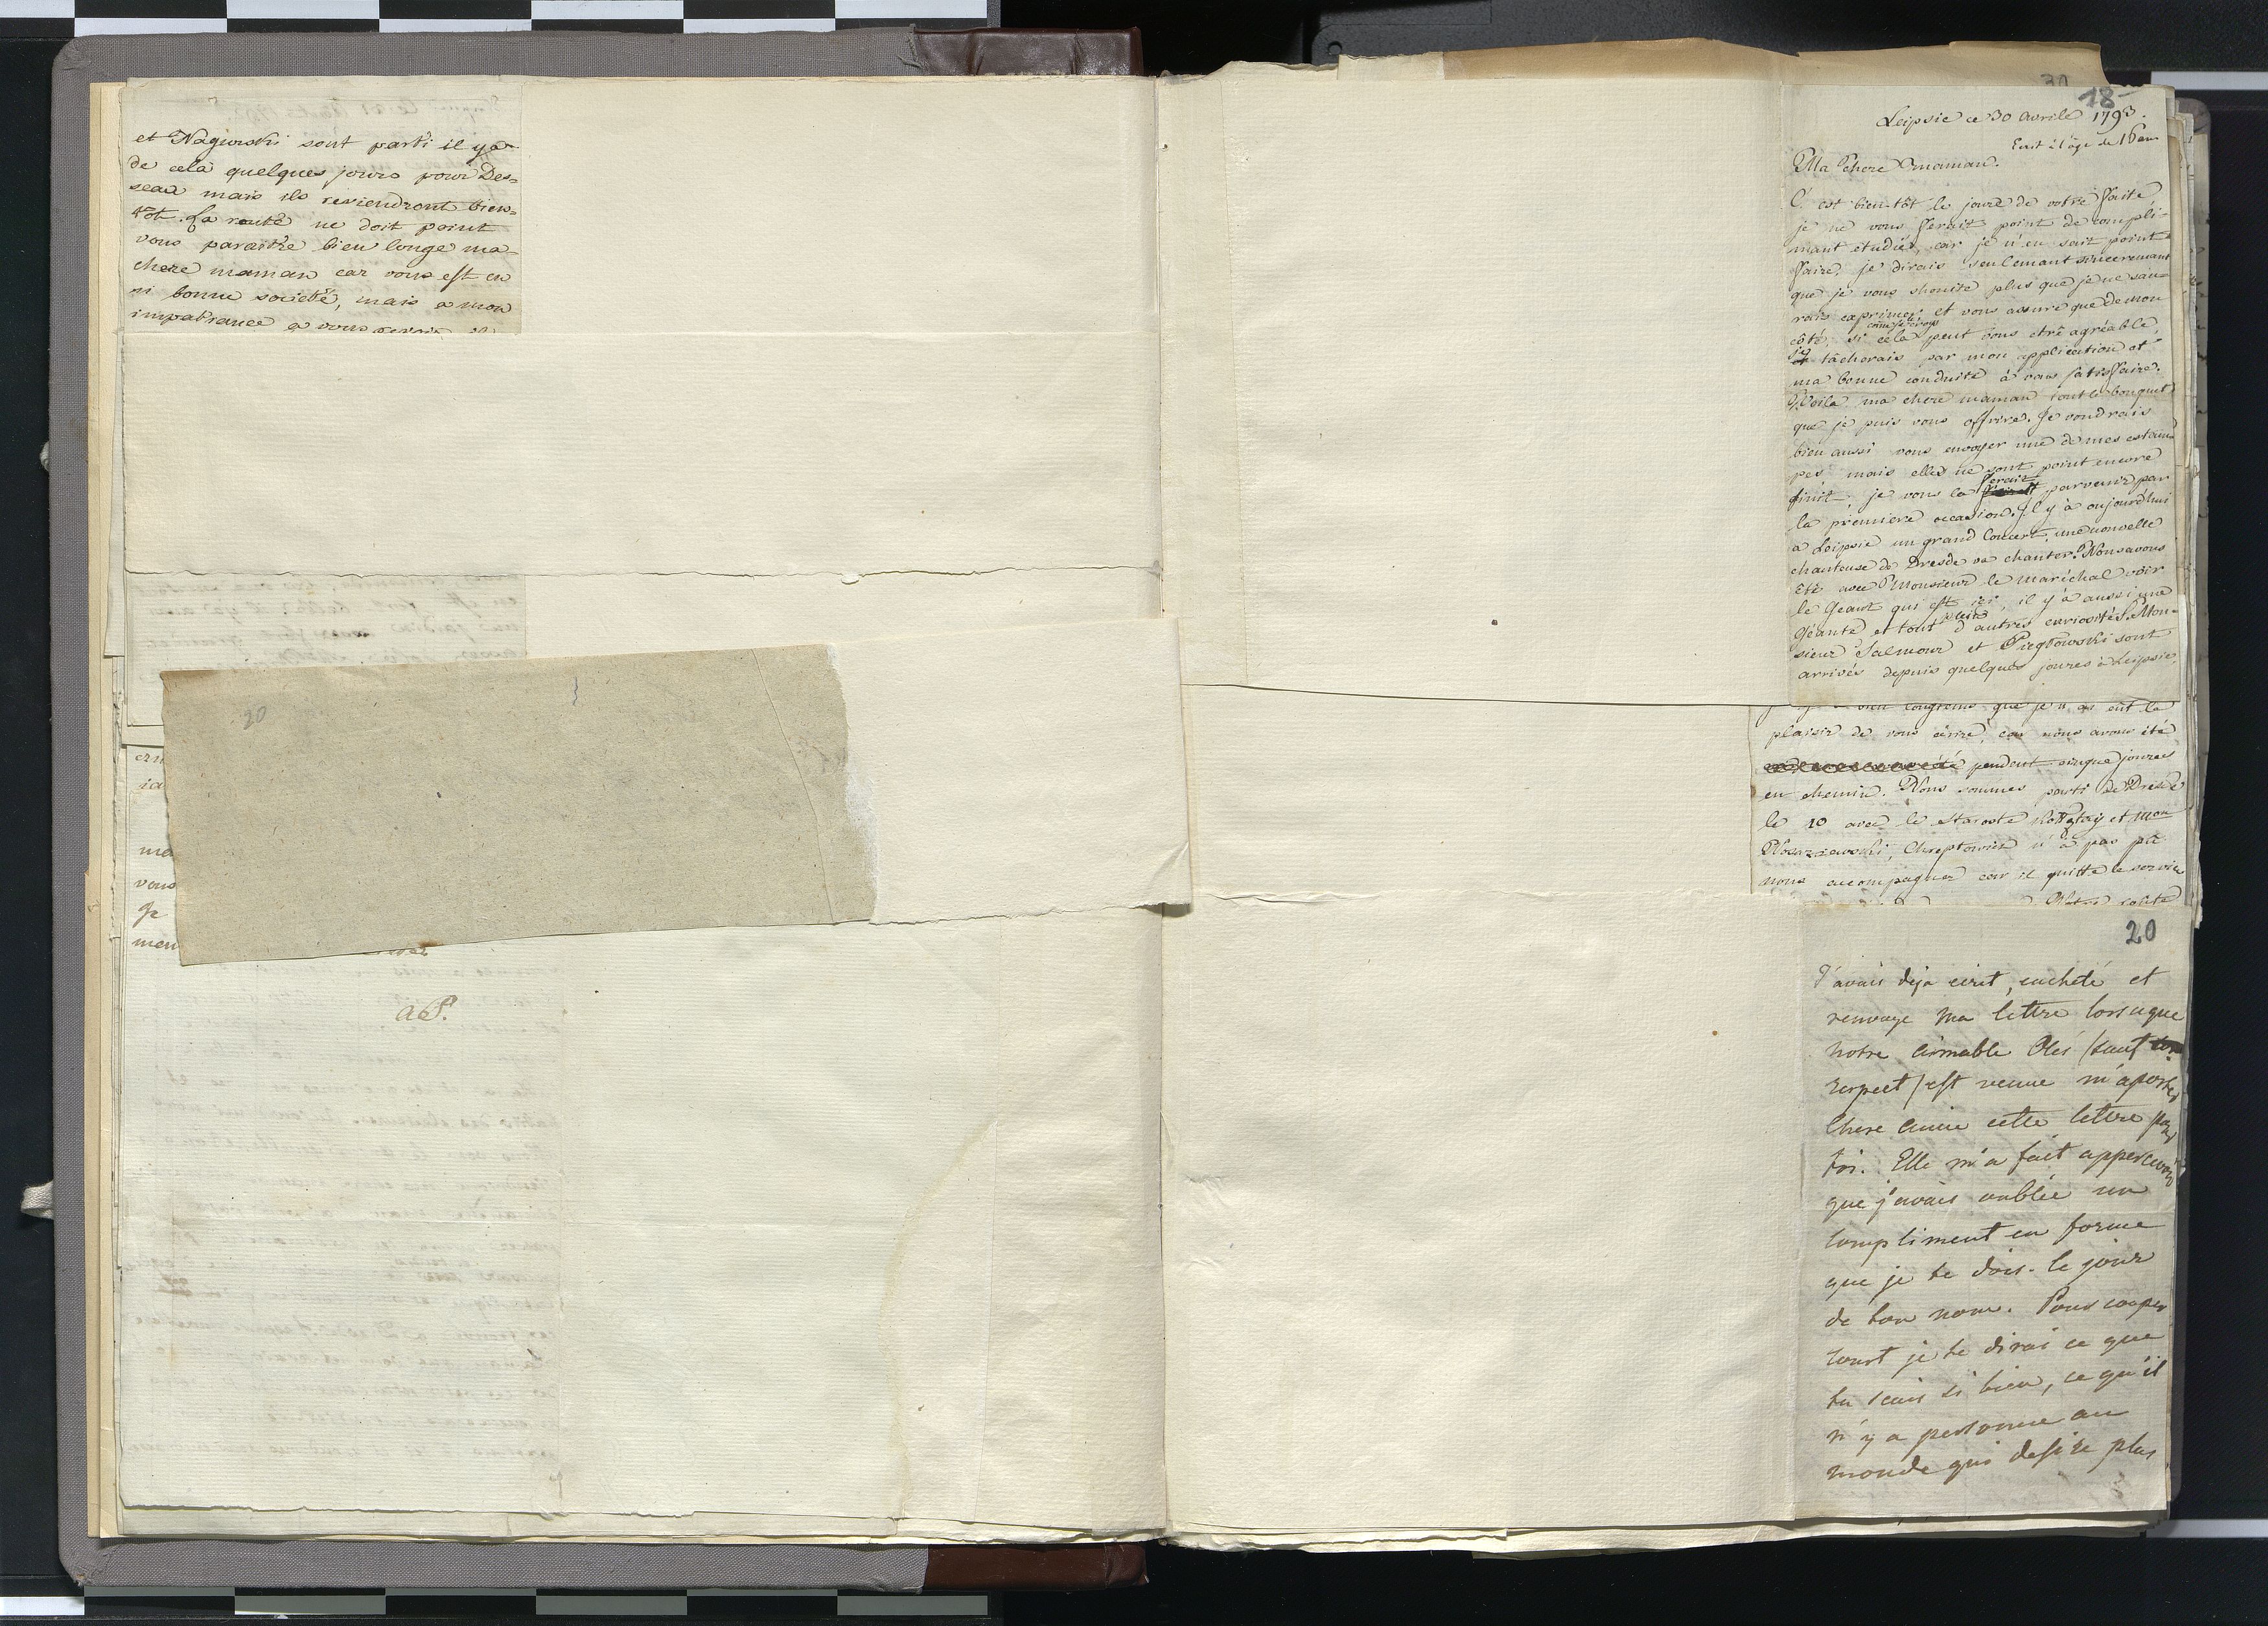 et Nagurski sont parti il ya
de celà quelques jours pour Des=
seau mais ils reviendront bien=
tôt. La routé ne doit point
vous paraitre bien longe ma
chere maman car vous est en
si bonne societé, mais a mon
impatiance a vous
ma
vous
je
men
20
a S.
30
18
Leipsic ce 30 Avrile 1793.
Ecrit à l'age de 16 ans
Ma chere Maman.
C'est bien-tôt le jour de votre faite,
je ne vous ferait point de compli-
mant etudiér, car je n'en sait point
faire, je dirais seulemant sincerement
que je vous shouite plus que je ne sau=
rais exprimer et vous assure que de mon
côté, si cela peut vous etrê agréable,
je tâcherais par mon application et
ma bonne conduite à vous satisfaire.
Voila ma chere maman tout le bouquet
que je puis vous offrire. Je voudrais
bien aussi vous envoyer une de mes estam=
pes mais elles ne sont point encore
finit, je vous la ferait parvenir par
la premiere occasion. Il y à oujourd'hui
a Leipsic un grand Concert, une nouvelle
chanteuse de Dresde va chanter. Nous avons
été avec Monsieur le maréchal voir
le Geant qui est ici, il y à aussi une
Géante et tout plein d'autres curiosités. Mon-
sieur Salmour et Piegłowski sont
arrivés depuis quelques joures à Leipsic,
bien longtems que je n'ai eut le
plaisir de vous écrire, car nous avons été
pendent cinque joures
en chemin. Nous sommes parti de Dresde
le 10 avec le staroste et mon
Chreptowicz n'a pas pû
nous acompagner car il quitte le service
Notre routé
20
J'avais deja ecrit, cacheté et
renvoye ma lettre lorsque
notre aimable Olés /sauf
respect/ est venue m'aporter
Chere Amie cette lettre pour
toi. Elle m'a fait appercevoir
que j'avais oubliée un
Compliment en forme
que je te dois le jour
de ton nom. Pour couper
court je te dirai ce que
tu scais si bien, ce qu'il
n'y a personne au
monde qui desire plus